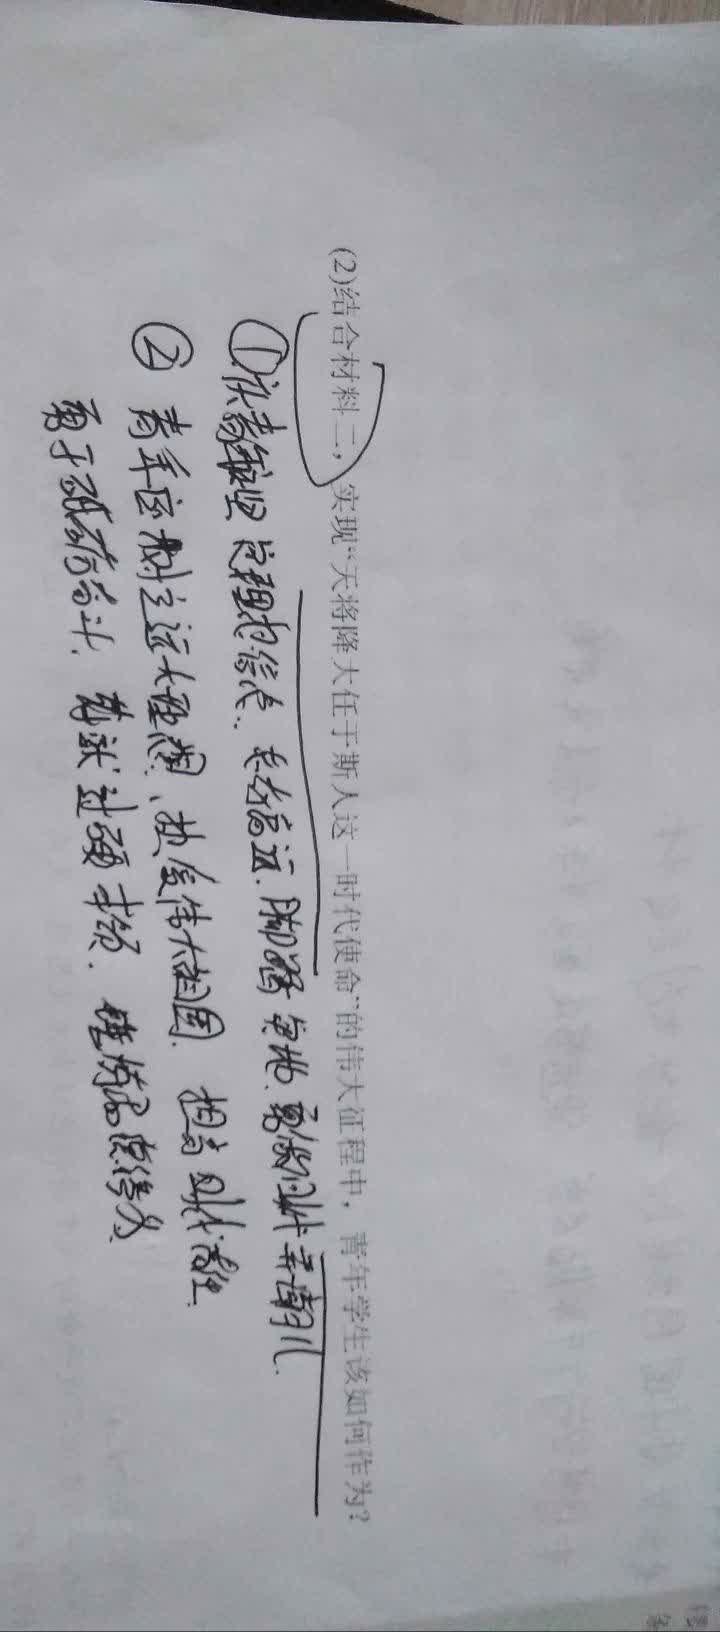 (2)结合材料二，实现“天将降大任于斯人这一时代使命”的伟大征程中，青年学生该如何作为？
①青年坚定理想信念、志存高远、脚踏实地、勇做时代弄潮儿.
② 青年应树立远大理想、热爱伟大祖国、担当时代责任.
勇于砥砺奋斗、练就过硬本领、锤炼品德修为